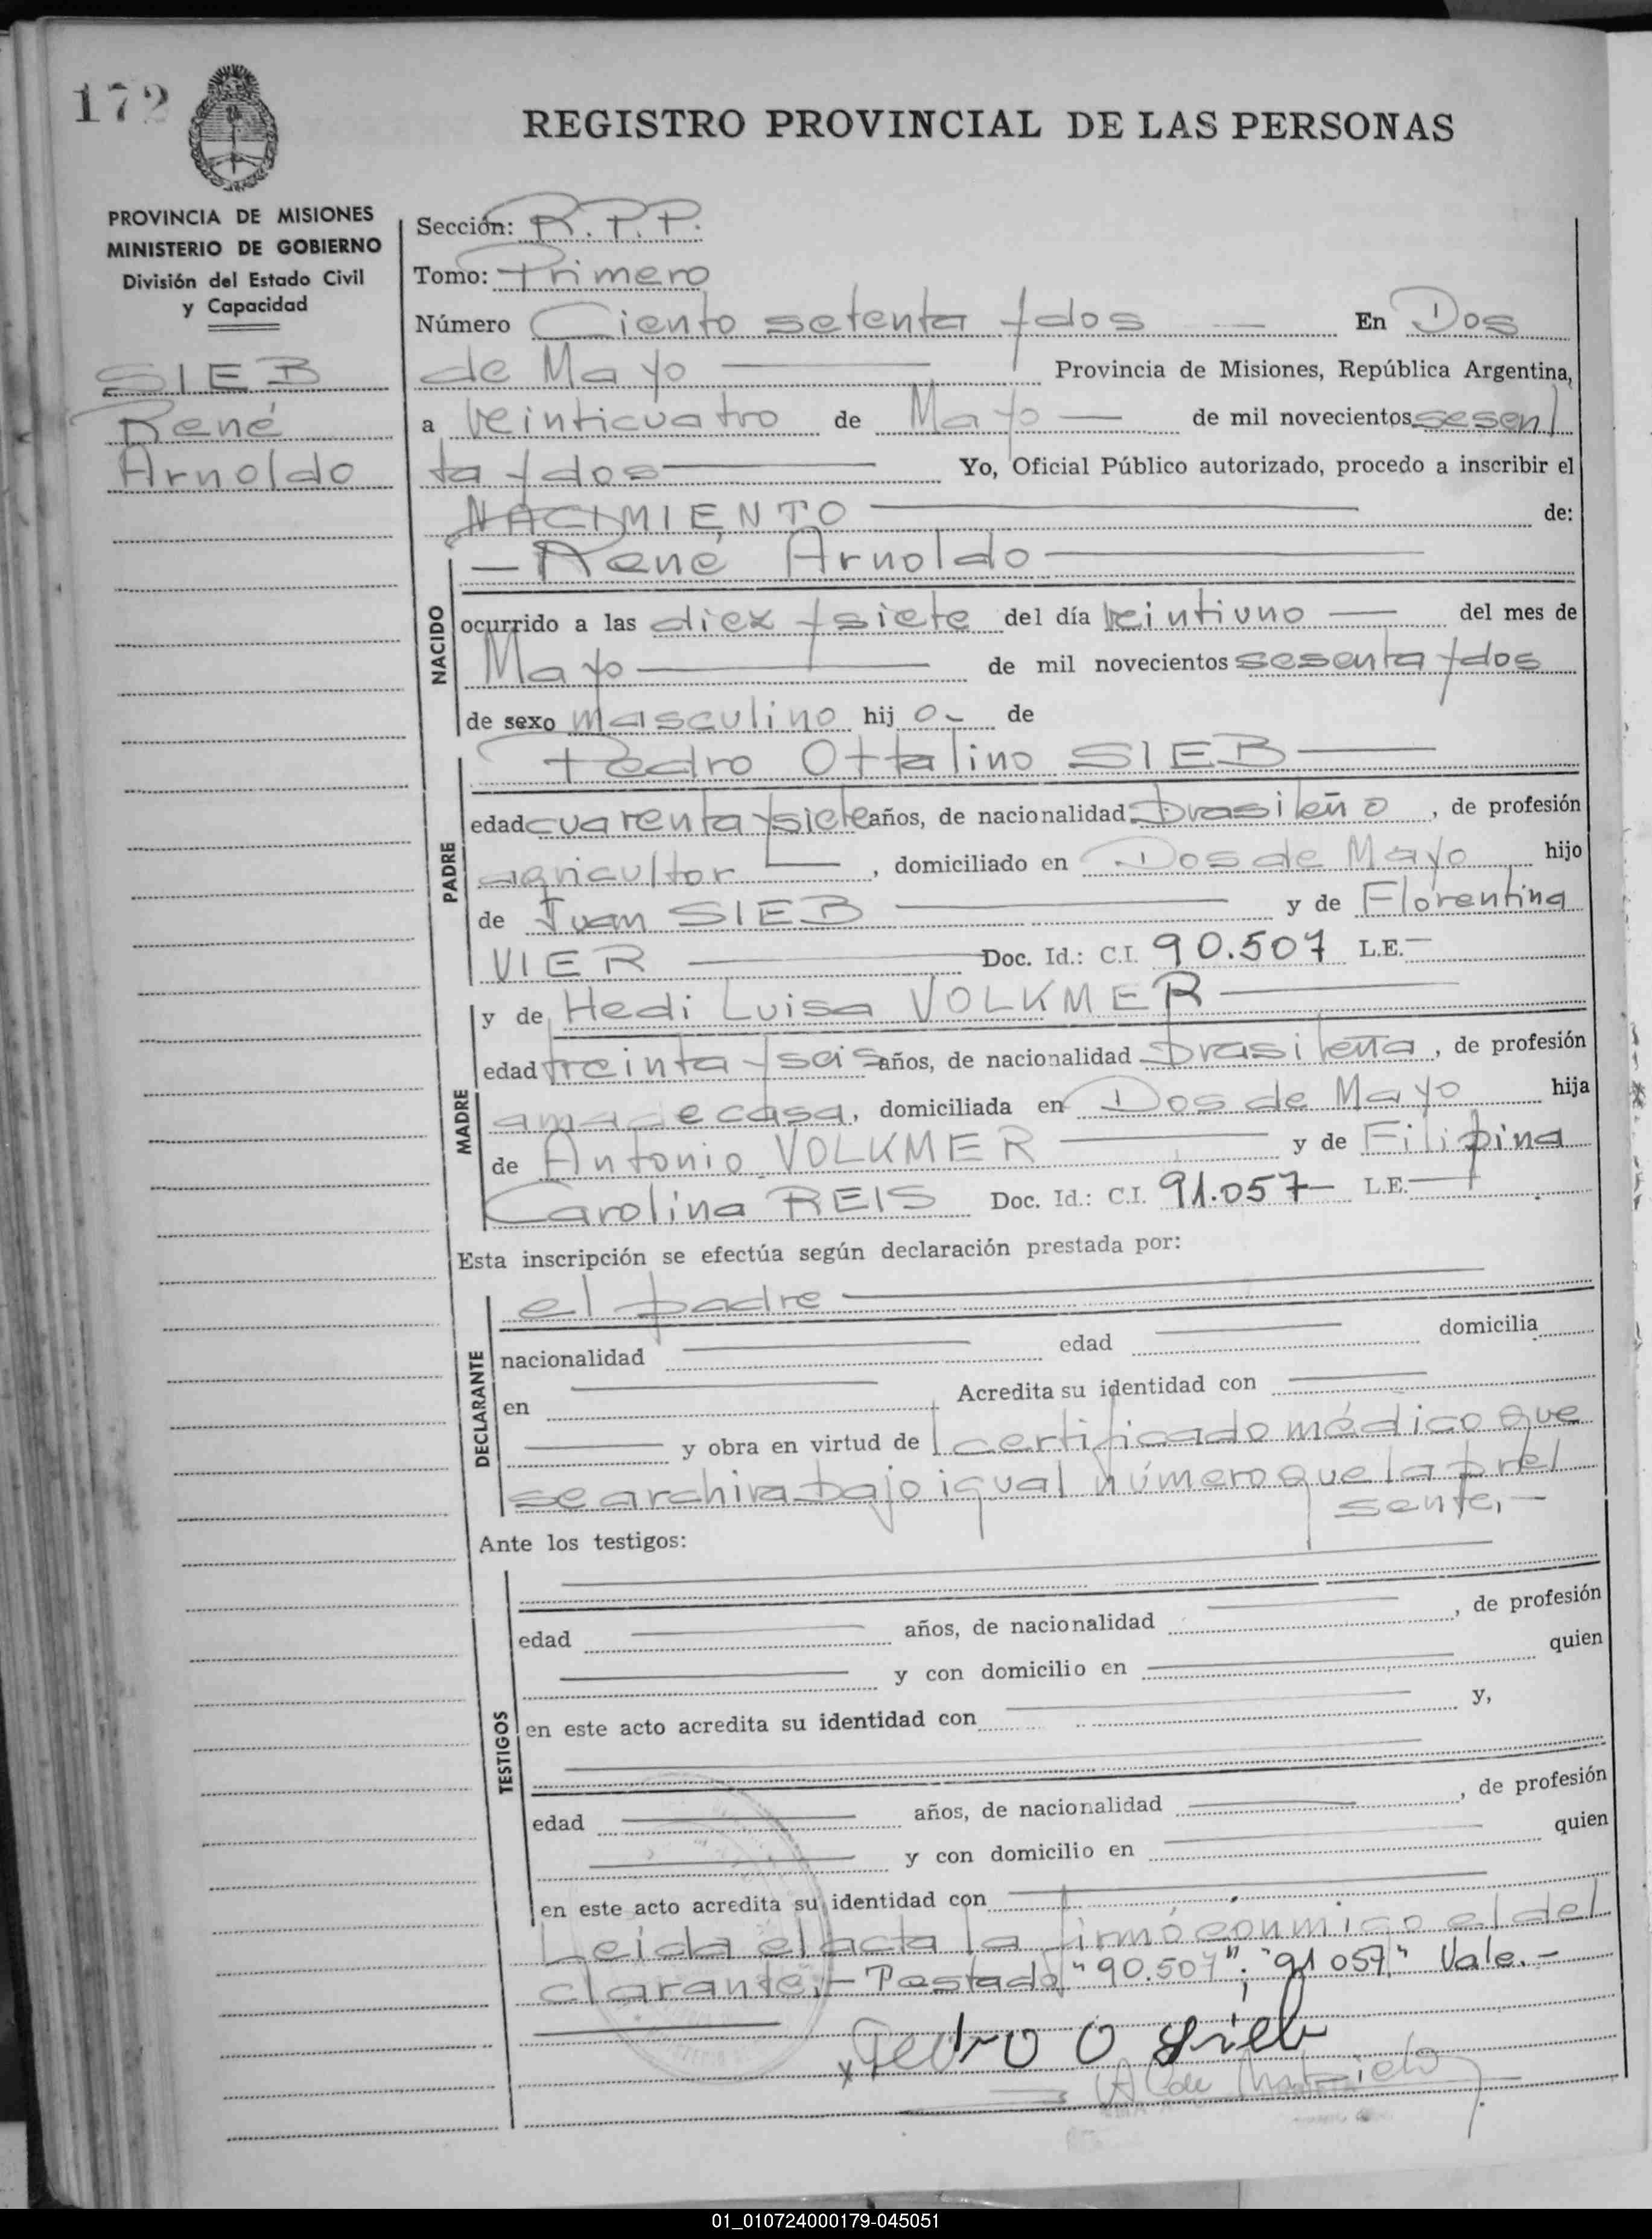 172
REGISTRO PROVINCIAL DE LAS PERSONAS
PROVINCIA DE MISIONES
MINISTERIO DE GOBIERNO
División del Estado Civil
y Capacidad
SIEB
René
Arnoldo
Sección: R.P.P.
Tomo: Primero
Número Ciento setenta y dos — En Dos
de Mayo — Provincia de Misiones, República Argentina,
a veinticuatro de Mayo — de mil novecientos sesen
ta y dos — Yo, Oficial Público autorizado, procedo a inscribir el
NACIMIENTO — de:
— René Arnoldo —
NACIDO
ocurrido a las diez y siete del día veintiuno — del mes de
Mayo — de mil novecientos sesenta y dos
de sexo masculino hij o- de
Pedro Ottalino SIEB —
PADRE
edad cuarenta y siete años, de nacionalidad brasileño, de profesión
agricultor —, domiciliado en Dos de Mayo hijo
de Juan SIEB — y de Florentina
VIER — Doc. Id.: C.I. 90.507 L.E. —
y de Hedi Luisa VOLKMER —
MADRE
edad treinta y seis años, de nacionalidad brasileña, de profesión
ama de casa, domiciliada en Dos de Mayo hija
de Antonio VOLKMER — y de Filipina
Carolina REIS Doc. Id.: C.I. 91.057- L.E. —
Esta inscripción se efectúa según declaración prestada por:
el padre —
DECLARANTE
nacionalidad — edad — domicilia
en — Acredita su identidad con —
— y obra en virtud de l certificado médico que
se archiva bajo igual número que la pre
sente,-
Ante los testigos:
TESTIGOS
edad — años, de nacionalidad —, de profesión
— y con domicilio en — quien
en este acto acredita su identidad con — y,
edad — años, de nacionalidad —, de profesión
— y con domicilio en — quien
en este acto acredita su identidad con —
Leida el acta la firmó conmigo el de
clarante,- Testado "90.507"; "91057" Vale.-
x Pedro O Sieb
01_010724000179-045051